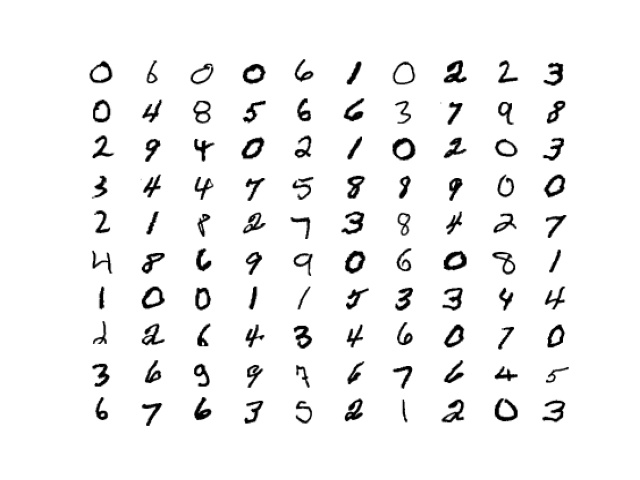 0 6 0 0 6 1 0 2 2 3
0 4 8 5 6 6 3 7 9 8
2 9 4 0 2 1 0 2 0 3
3 4 4 7 5 8 9 9 0 0
2 1 8 2 7 3 8 4 2 7
4 8 6 9 9 0 6 0 8 1
1 0 0 1 1 5 3 3 4 4
2 2 6 4 3 4 6 0 7 0
3 6 9 9 7 6 7 6 4 5
6 7 6 3 5 2 1 2 0 3